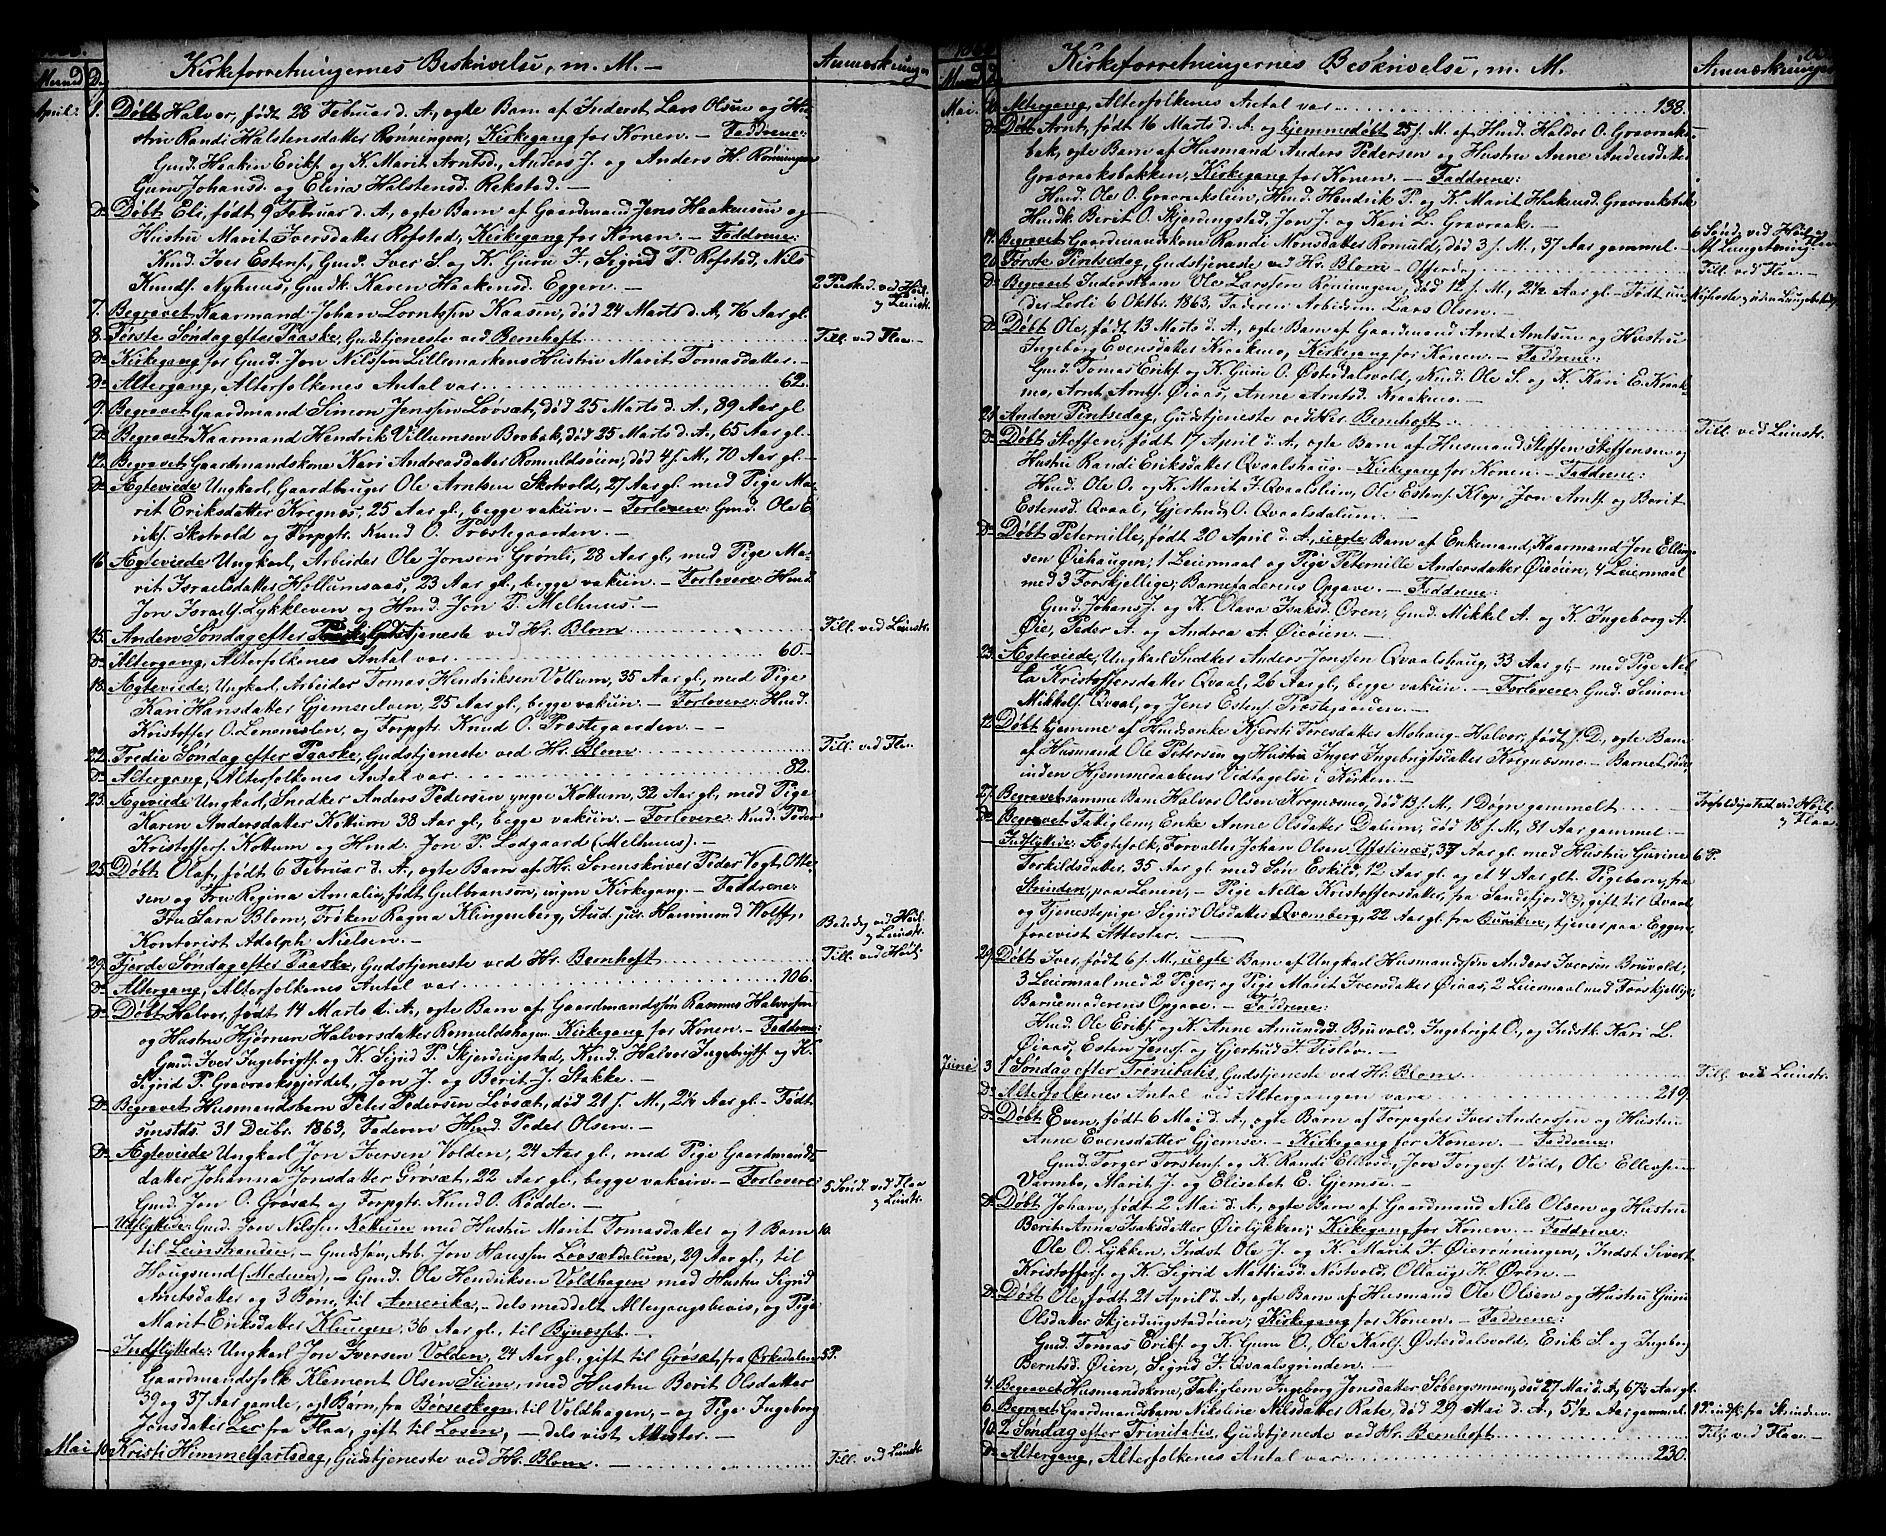 Kirkeforretningernes Beskrivelse, m. M. — Anmærkninger
Maaned D.
April. 1. Døbt Halvor, født 28 Februar d. A., ægte Barn af Inderst Lars Olsen og Hu-
stru Randi Halstensdatter Rønningen, Kirkegang for Konen. — Faddrene:
Gmd. Haakin Eriks. og K. Marit Arntsd., Anders J. og Anders H. Rønningen
Guru Johansd. og Elina Halstensd. Rekstad. —
Do Døbt Eli, født 9 Februar d. A., ægte Barn af Gaardmand Jens Haakensen og
Hustru Marit Iversdatter Rofstad, Kirkegang for Konen. — Faddrene:
Kmd. Iver Estens., Gmd. Iver S. og K. Guru J., Sigrid P. Rofstad, Nils
Knuds. Nyhuus, Gmdk. Karen Haakensd. Eggen. — 2 Paaskd. ved Høil. og Leinstr.
7. Begravet Kaarmand Johan Lorntssen Kaasen, død 24 Marts d. A., 76 Aar gl.
8. Første Søndag efter Paaske, Gudstjeneste ved Bernhoft. Till. ved Flaa. —
Do Kirkegang for Gmd. Jon Nilssen Lillemarkens Hustru Marit Tomasdatter. —
Do Altergang, Alterfolkenes Antal var 62.
9. Begravet Gaardmand Simon Jenssen Løvsæt, død 25 Marts d. A., 89 Aar gl.
Do Begravet Kaarmand Hendrik Villumsen Brobak, død 25 Marts d. A., 65 Aar gl. —
12. Begravet Gaardmandskone Kari Andreasdatter Romuldsøien, død 4 f. M., 70 Aar gl. —
Do Ægteviede Ungkarl, Gaardbruger Ole Arntsen Skotvold, 27 Aar gl. med Pige Ma-
rit Eriksdatter Kregnæs, 25 Aar gl., begge vakcin. — Forlovere: Gmd. Ole E-
riks. Skotvold og Forpgtr. Knud O. Præstegaarden. —
16. Ægteviede Ungkarl, Arbeider Ole Jonsen Grønli, 28 Aar gl., med Pige Ma-
rit Israelsdatter Hollumsaas, 23 Aar gl., begge vakcin. — Forlovere: Hmd.
Jon Israels. Lykkleven og Hmd. Jon P. Melhuus. —
15. Anden Søndag efter Paaske, Gudstjeneste ved Hr. Blom Till. ved Leinstr.
Do Altergang, Alterfolkenes Antal var 60. —
18. Ægteviede, Ungkarl, Arbeider Tomas Hendriksen Vollum, 35 Aar gl., med Pige
Kari Hansdatter Gjemselven, 25 Aar gl., begge vakcin. — Forlovere: Hmd.
Kristoffer O. Lenemslen, og Forpgtr. Knud O. Præstegaarden. —
22. Tredie Søndag efter Paaske, Gudstjeneste ved Hr. Blom Till. ved Flaa.
Do Altergang, Alterfolkenes Antal var 82.
23. Ægeviede Ungkarl, Snedker Anders Pedersen yngre Kottum, 32 Aar gl., med Pige
Karen Andersdatter Kottum 38 Aar gl., begge vakcin. — Forlovere: Kmd. Peder
Kristoffers. Kottum og Hmd. Jon P. Lodgaard (Melhuus). —
25. Døbt Olaf, født 6 Februar d. A., ægte Barn af Hr. Sorenskriver Peder Vogt Otte-
sen og Fru Regina Amalia, født Gulbranson, ingen Kirkegang. — Faddrene:
Fru Sara Blom, Frøken Ragna Klingenberg, Stud. jur. Hammond Wolff,
Kontorist Adolph Nielsen. — Bededg. ved Høil. og Leinstr.
29. Fjerde Søndag efter Paaske, Gudstjeneste ved Hr. Bernhoft Till. ved Høil.
Do Altergang, Alterfolkenes Antal var 106.
Do Døbt Halvor, født 14 Marts d. A., ægte Barn af Gaardmandssøn Rasmus Halvorsen
og Hustru Hjørnen Halvorsdatter Romuldshagen. Kirkegang for Konen. — Faddrene:
Gmd. Iver Ingebrigts. og K. Sigrid P. Skjerdingstad, Kmd. Halvor Ingebrigts. og K.
Sigrid P. Gravraaksgjerdet, Jon J. og Berit J. Stokke. —
Do Begravet Husmandsbarn Peter Pedersen Løvsæt, død 21 f. M., 2¼ Aar gl. — Født
sinstds. 31 Decbr. 1863, Faderen Hmd. Peder Olsen. —
Do Ægteviede Ungkarl Jon Iversen Volden, 24 Aar gl., med Pige Gaardmands-
datter Johanna Jonsdatter Grøsæt, 22 Aar gl., begge vakcin. — Forlovere: 5 Sønd. ved Flaa og Leinstr.
Gmd. Jon O. Grøsæt og Forpgtr. Knud O. Rødde. —
— Udflyttede: Gmd. Jon Nilssen Kottum med Hustru Marit Tomasdatter og 1 Barn
til Leinstranden, — Gmdssøn, Arb. Jon Hanssen Løvsætdalum, 29 Aar gl., til
Hougsund (Modum), — Gmd. Ole Hendriksen Voldhagen med Hustru Sigrid
Arntsdatter og 3 Børn, til Amerika, — dels meddelt Altergangsbevis, og Pige
Marit Eriksdatter Klungen, 36 Aar gl., til Bynæsset. —
— Indflyttede: Ungkarl Jon Iversen Volden, 24 Aar gl., gift til Grøsæt, fra Ørkedalen 5 P.
Gaardmandsfolk Klement Olsen Siim, med Hustru Berit Olsdatter
39 og 37 Aar gamle, og Børn, fra Børseskogn, til Voldhagen, — og Pige Ingeborg
Jonsdatter Ler fra Flaa, gift til Losen, — dels vist Attester. —
Mai 10. Kristi Himmelfartsdag, Gudstjeneste ved Hr. Blom. — Till. ved Leinstr.
Kirkeforretningernes Beskrivelse, m. M. Anmærkninger
Mai. Altergang, Alterfolkenes Antal var 138.
Do Døbt Arnt, født 16 Marts d. A. og hjemmedøbt 25 f. M. af Hmd. Haldor O. Gravraaks-
bak, ægte Barn af Husmand Anders Pedersen og Hustru Anne Andersdatter
Gravraaksbakken, Kirkegang for Konen. — Faddrene:
Hmd. Ole O. Gravraakslien, Hmd. Hendrik P. og K. Marit Haakensd. Gravraaksbak
Hmdk. Berit O. Skjerdingstad, Jon J. og Kari L. Gravraak. —
14. Begravet Gaardmandskone Randi Monsdatter Romuld, død 3 f. M., 37 Aar gammel — 6 Sønd. ved Høil. og Flaa
20. Første Pintsedag, Gudstjeneste ved Hr. Blom — Offerdag Till. ved Flaa. —
Do Begravet Inderstbarn Ole Larssen Rønningen, død 12 f. M., 2½ Aar gl. — Født un-
der Lerli 6 Oktbr. 1863, Faderen Arbeidsm. Lars Olsen.
Do Døbt Ole, født 13 Marts d. A., ægte Barn af Gaardmand Arnt Arntsen og Hustru
Ingeborg Evensdatter Kraakmo, Kirkegang for Konen. — Faddrene:
Gmd. Tomas Eriks. og K. Guru O. Østerdalsvold, Kmd. Ole S. og K. Kari E. Kraak-
mo, Arnt Arnts. Øiaas, Anne Arntsd. Kraakmo. —
21. Anden Pintsedag, Gudstjeneste ved Hr. Bernhoft Till. ved Leinstr.
Do Døbt Steffen, født 17 April d. A., ægte Barn af Husmand Steffen Steffensen og
Hustru Randi Eriksdatter Qvaalshaug. — Kirkegang for Konen. — Faddrene:
Hmd. Ole O. og K. Marit J. Qvaalslien, Ole Estens. Klep, Jon Arnts. og Berit
Estensd. Qvaal, Gjertrud O. Qvaalsdalum. —
Do Døbt Peternille, født 20 April d. A., uægte Barn af Enkemand, Kaarmand Jon Elling-
sen Øiehaugen; 1 Leiermaal og Pige Peternille Andersdatter Øieøien, 4 Leiermaal
med 3 Forskjellige; Barnefaderens Opgave. — Faddrene:
Gmd. Johans J. og K. Olava Isaksd. Øren, Gmd. Mikkel A. og K. Ingeborg A.
Øie, Peder A. og Andrea A. Øieøien. —
23. Ægteviede, Ungkarl Snedker Anders Jonssen Qvaalshaug, 33 Aar gl., — med Pige Nel-
la Kristoffersdatter Qvaal, 26 Aar gl., begge vakcin. — Forlovere: Gmd. Simon
Mikkels. Qvaal, og Jens Estens. Præstegaarden. —
12. Døbt hjemme af Hmdenke Kjersti Toresdatter Mohaug — Halvor, født f. D., ægte Barn
af Husmand Ole Petersen og Hustru Inger Ingebrigtsdatter Kregnæsmo. — Barnet døde
inden Hjemmedaabens Iidtagelse i Kirken. —
27. Begravet samme Barn Halvor Olsen Kregnæsmo, død 13 f. M., 1 Døgn gammelt Trefoldigsfest ved Høil. og Flaa.
Do Begravet Fattiglem, Enke Anne Olsdatter Dalum, død 18 f. M., 31 Aar gammel —
— Indflyttede: Ægtefolk, Forvalter Johan Olsen Yfstines, 37 Aar gl. med Hustru Gurine 6 P.
Torkildsdatter, 35 Aar gl. med Søn Eskild, 12 Aar gl. og et 4 Aar glt. Pigebarn, fra
Strinden, paa Lenen, — Pige Nella Kristoffersdatter, fra Sandefjord (?), gift til Qvaal
og Tjenestepige Sigrid Olsdatter Qvamberg, 22 Aar gl. fra Buviken, tjener paa Eggen
forevist Attester. —
29. Døbt Iver, født 6 f. M., uægte Barn af Ungkarl Husmandssøn Anders Iversen Bruvold;
3 Leiermaal med 2 Piger, og Pige Marit Iversdatter Øiaas; 2 Leiermaal med Forskjellige;
Barnemoderens Opgave. — Faddrene:
Hmd. Ole Eriks. og K. Anne Amundsd. Bruvold, Ingebrigt O., og Indstk. Kari L.
Øiaas, Esten Jens. og Gjertrud J. Tisløv. —
Juni 3. 1 Søndag efter Trinitatis, Gudstjeneste ved Hr. Blom Till. ved Leinstr.
Do Alterfolkenes Antal ved Altergangen vare 219.
Do Døbt Even, født 6 Mai d. A., ægte Barn af Forpagter Iver Anderssen og Hustru
Anne Evensdatter Gjemse. — Kirkegang for Konen. — Faddrene:
Gmd. Torger Torstens. og K. Randi Ellevsd., Jon Torgers. Vold, Ole Ellevsen
Varmbo, Marit J. og Elisabet E. Gjemse. —
Do Døbt Johan, født 2 Mai d. A., ægte Barn af Gaardmand Nils Olsen og Hustru
Berit Anna Isaksdatter Øielykken; Kirkegang for Konen. — Faddrene:
Ole O. Lykken, Indst. Ole J. og K. Marit J. Øierønningen, Indst. Sivert
Kristoffers. og K. Sigrid Mattiasd. Nøstvold, Ollaug H. Øren. —
Do Døbt Ole, født 21 April d. A., ægte Barn af Husmand Ole Olsen og Hustru Guru
Olsdatter Skjerdingstadøien; Kirkegang for Konen. — Faddrene:
Gmd. Tomas Eriks. og K. Guru O., Ole Karls. Østerdalsvold, Erik S. og Ingeborg
Berntsd. Øien, Sigrid J. Qvaalsgrinden. —
4. Begravet Husmandskone, Fattiglem Ingeborg Jonsdatter Søbergsmoen, død 27 Mai d. A., 67½ Aar gl.
6. Begravet Gaardmandsbarn Nikoline Nilsdatter Rate, død 29 Mai d. A., 5½ Aar gammel. 1 P. indf. fra Strinden.
10. 2 Søndag efter Trinitatis, Gudstjeneste ved Hr. Bernhoft Till. ved Flaa. —
Do Altergang, Alterfolkenes Antal var 230.